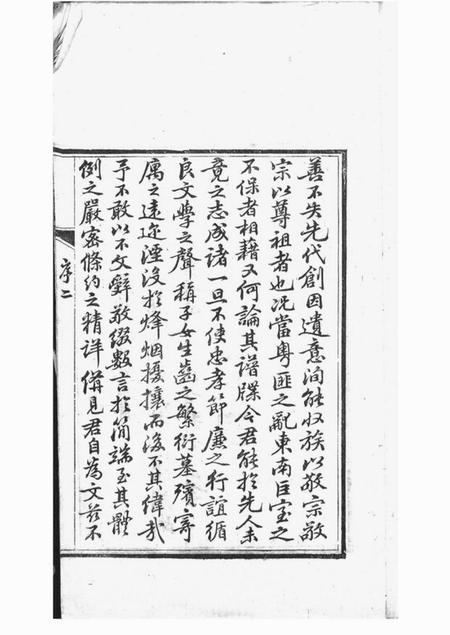 善不失先代創因遺意洵能收族以敬宗敬
宗以尊祖者也况當粤匪之亂東南巨室之
不保者相藉又何論其譜牒今君能於先人未
竟之志成諸一旦不使忠孝節廉之行誼循
良文學之聲稱子女生齒之繁衍墓殯寄
厲之遠迩湮没於烽烟擾攘而後不其偉哉
予不敢以不文辭敬綴數言於簡端至其體
例之嚴密條約之精詳備見君自為文兹不
序二